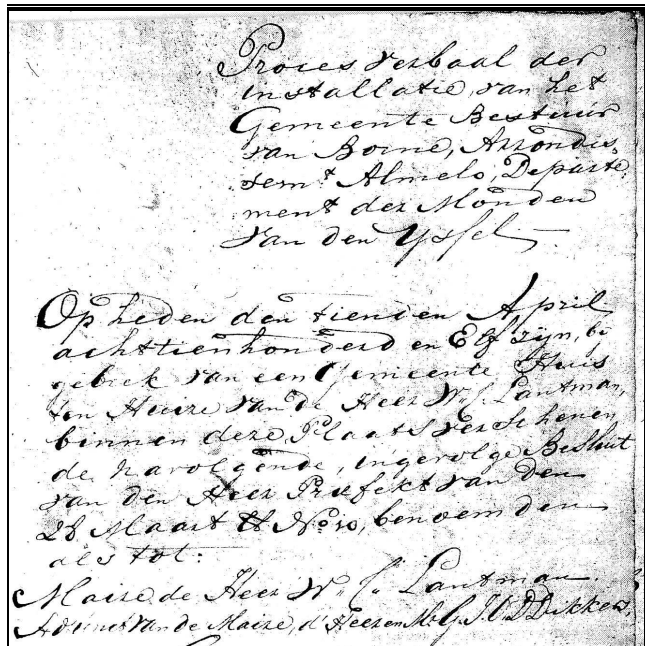 Proces verbaal der
installatie, van het
Gemeente Bestuur
van Borne, Arrondis,
sem.t Almelo, Departe,
ment der Monden
van den Yssel
Op heden den tienden April
achttienhonderd en Elf zijn, bi
gebrek van een Gemeente Huis
ten Huize van de Heer W. C. Lantman,
binnen deze Plaats verschenen
de navolgende, ingevolge Besluit
van den Heer Prefekt van den
28 Maart No 10, benoemden
als tot:
Maire de Heer W. C. Lantman.
Adjunct van de Maire, d'Heeren Mr G. J. O. D. Dikkers,